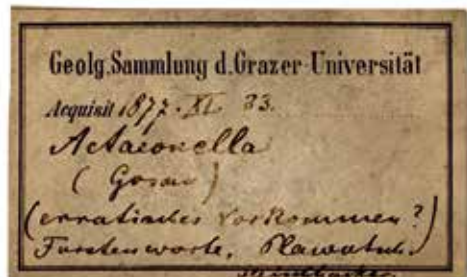 Geolg. Sammlung d. Grazer Universität
Acquisit 1877. XI. 33.
Actaeonella
( Gosau )
(erratisches Vorkommen?)
Fürstenwarte, Plawutsch